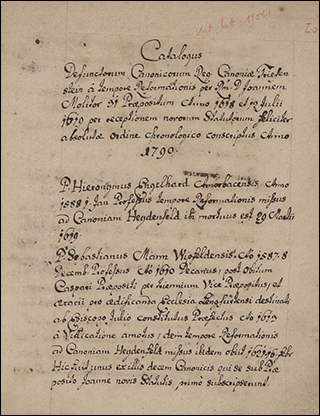 Vat. lat. 11051
Catalogus
Defunctorum Canonicorum Reg. Canoniæ Triefen
stein a tempore Reformationis per Rm. D. Joannem
Molitor 31 Præpositum Anno 1618 et 12 Julii
1619 per receptionem novorum Statutorum feliciter
absolutæ ordine Chronologico conscriptus Anno
1790.
P. Hieronymus Engelhard Amorbacensis Anno
1588 1 Jan Professus tempore Reformationis missus
ad Canoniam Heydenfeld ibi mortuus est 29 Martii
1619.
P. Sebastianus Mann 1587. 8
Decemb. Professus Ao 1610 Decanus, post obitum
Caspari Præpositi per Vice Præpositus, et
ærarii pro ædificanda Ecclesia destinati
ab Episcopo Julio constitutus Præfectus Ao 1613
a amotus, dein tempore Reformationis
ad Canoniam Heydenfeld missus ibidem obiit
Hic fuit unus ex illis decem Canonicis qui se sub Præ
posito Joanne novis Statutis primo subscripserunt.